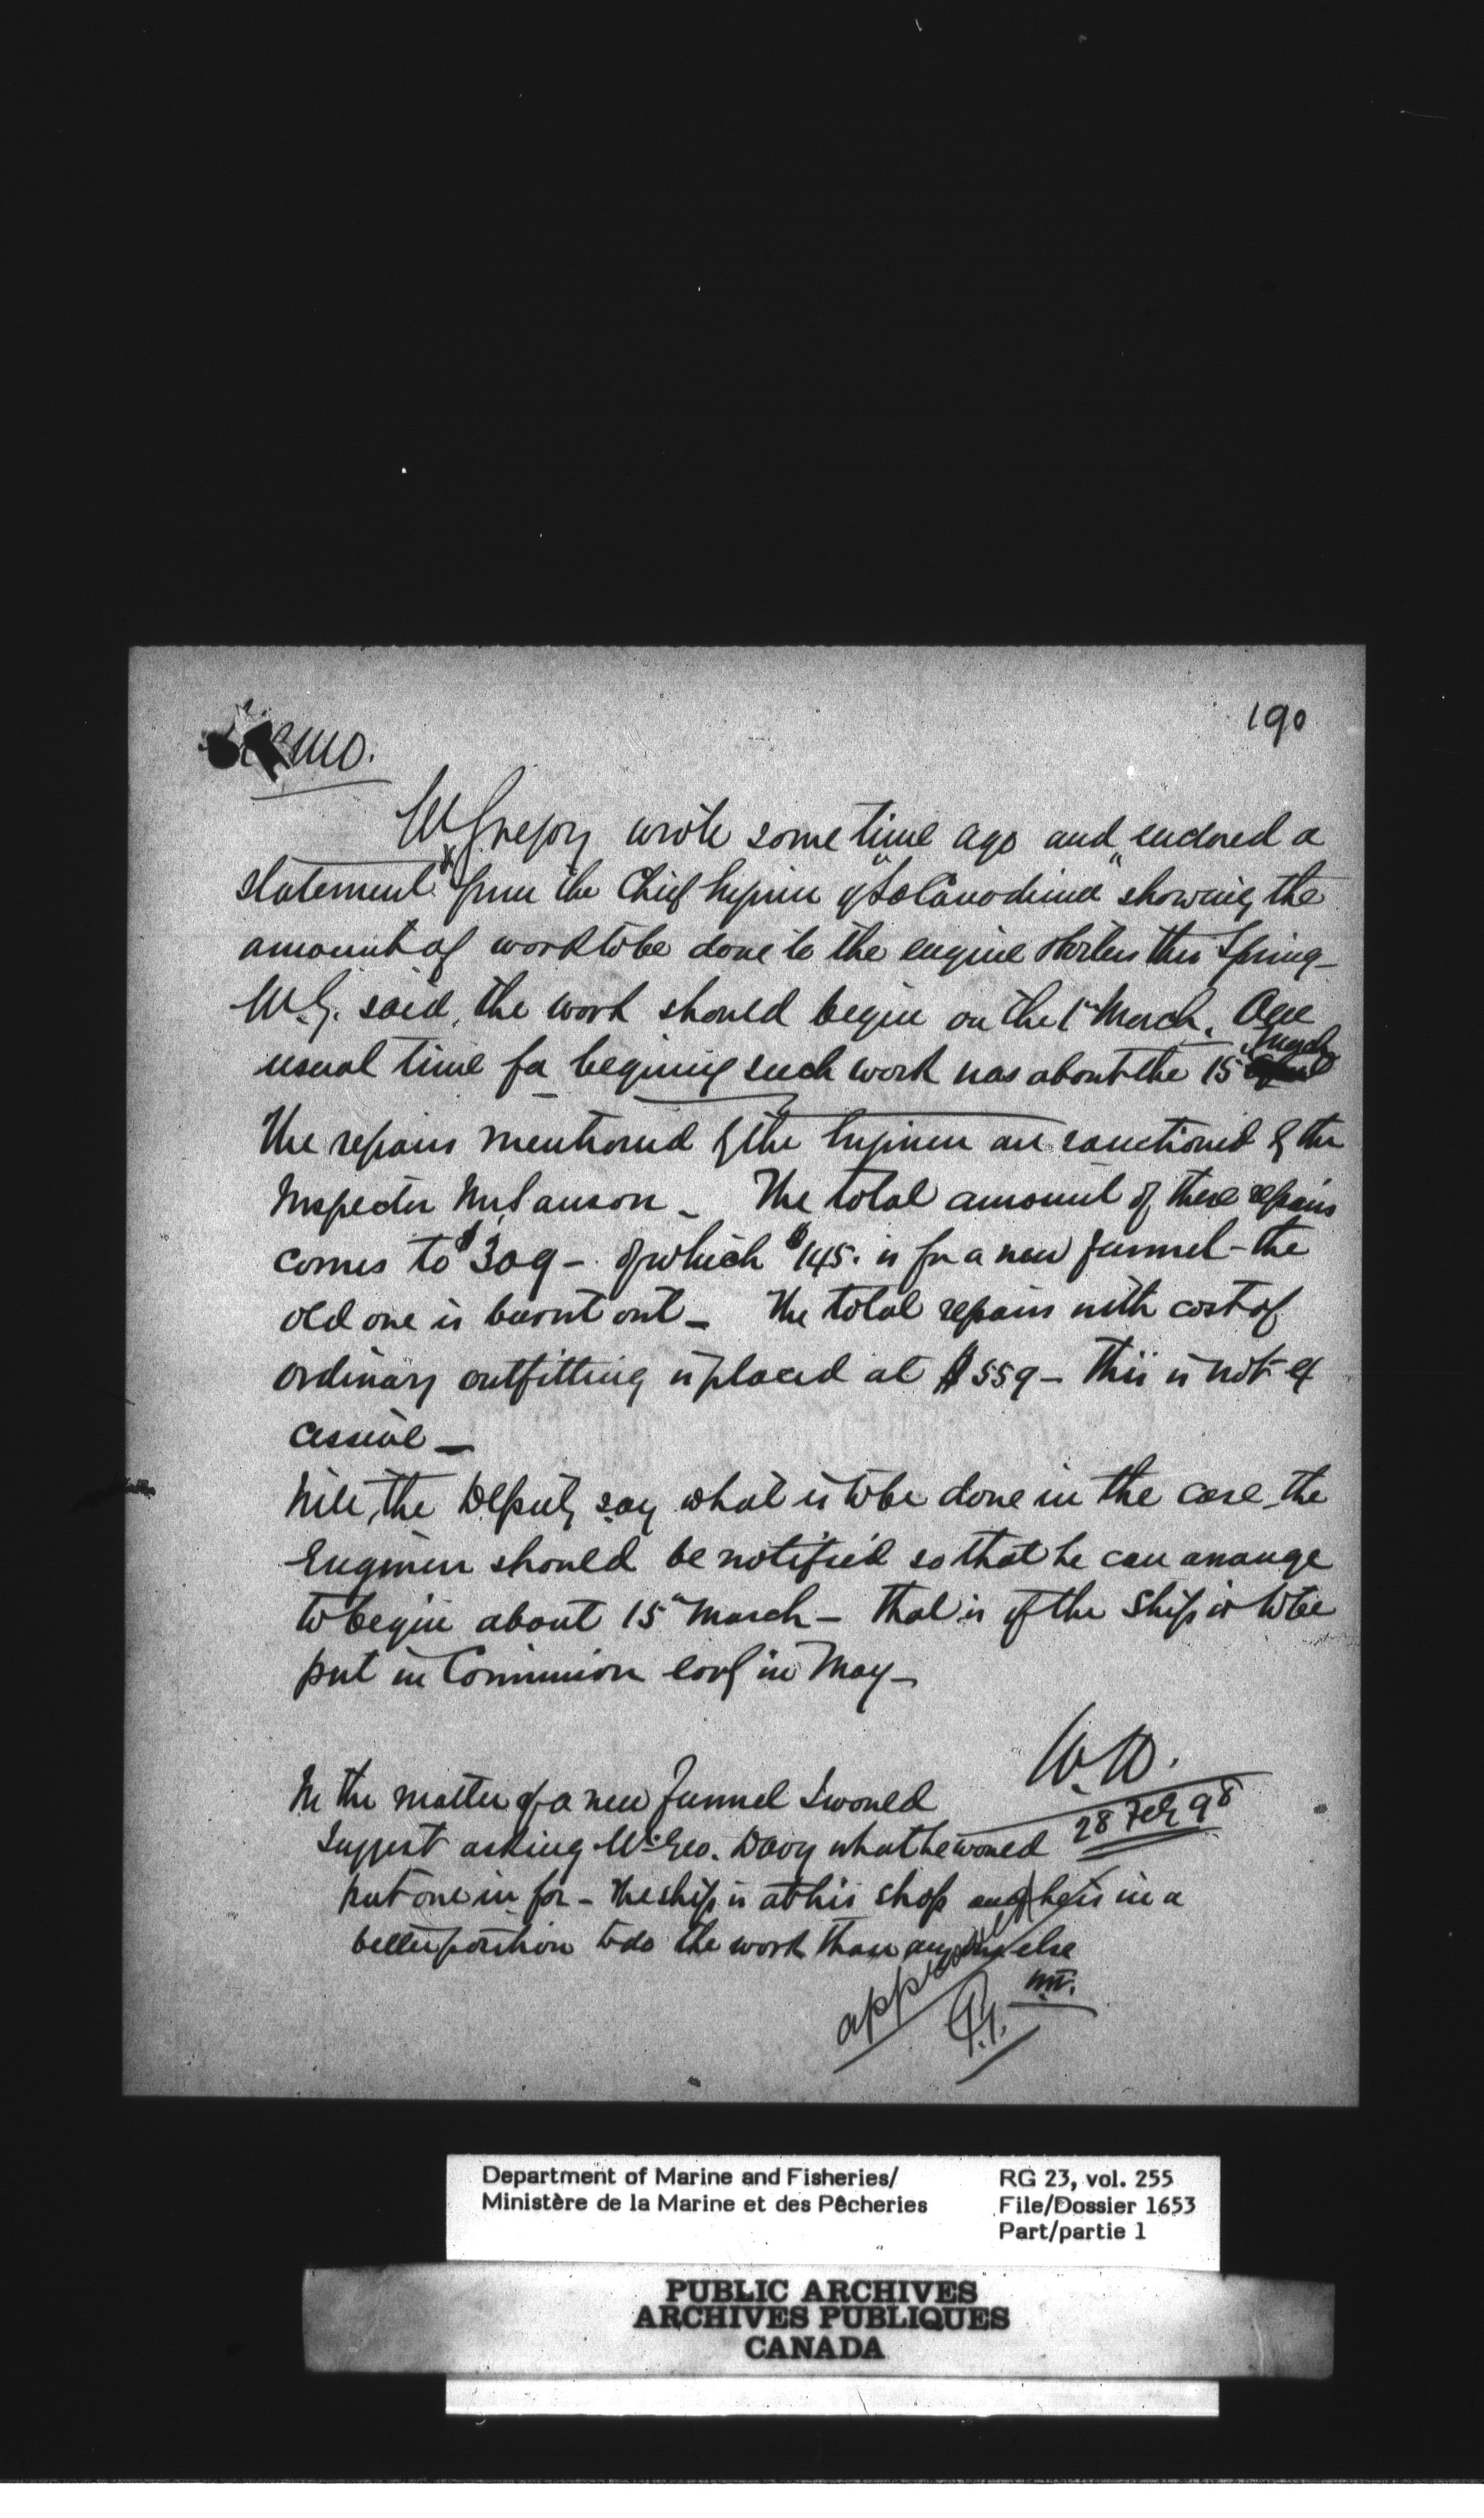 190
Memo.
Mr Gregory wrote some time ago and enclosed a
statement from the Chief Engineer of "La Canadienne" showing the
amount of work to be done to the engine & boilers this Spring -
Mr G. said, the work should begin on the 1st March. Our
usual time for begining such work was about the 15 March
The repairs mentioned by the Engineer are sanctioned by the
Inspector Mr Samson - The total amount of these repairs
comes to $309 - of which $145. is for a new funnel - the
old one is burnt out - The total repairs with cost of
ordinary outfitting is placed at $559 - this is not ex
cessive -
Will the Deputy say what is to be done in the case, the
Engineer should be notified so that he can arrange
to begin about 15th March - that is if the ship is to be
put in Commission early in May -
28 Feb 98
In the matter of a new funnel I would
suggest asking Mr Geo. Davy what he would
put one in for - The ship is at his shop and he is in a
better position to do the work than anyone else
approved
Department of Marine and Fisheries/
Ministère de la Marine et des Pêcheries
RG 23, vol. 255
File/Dossier 1653
Part/partie 1
PUBLIC ARCHIVES
ARCHIVES PUBLIQUES
CANADA